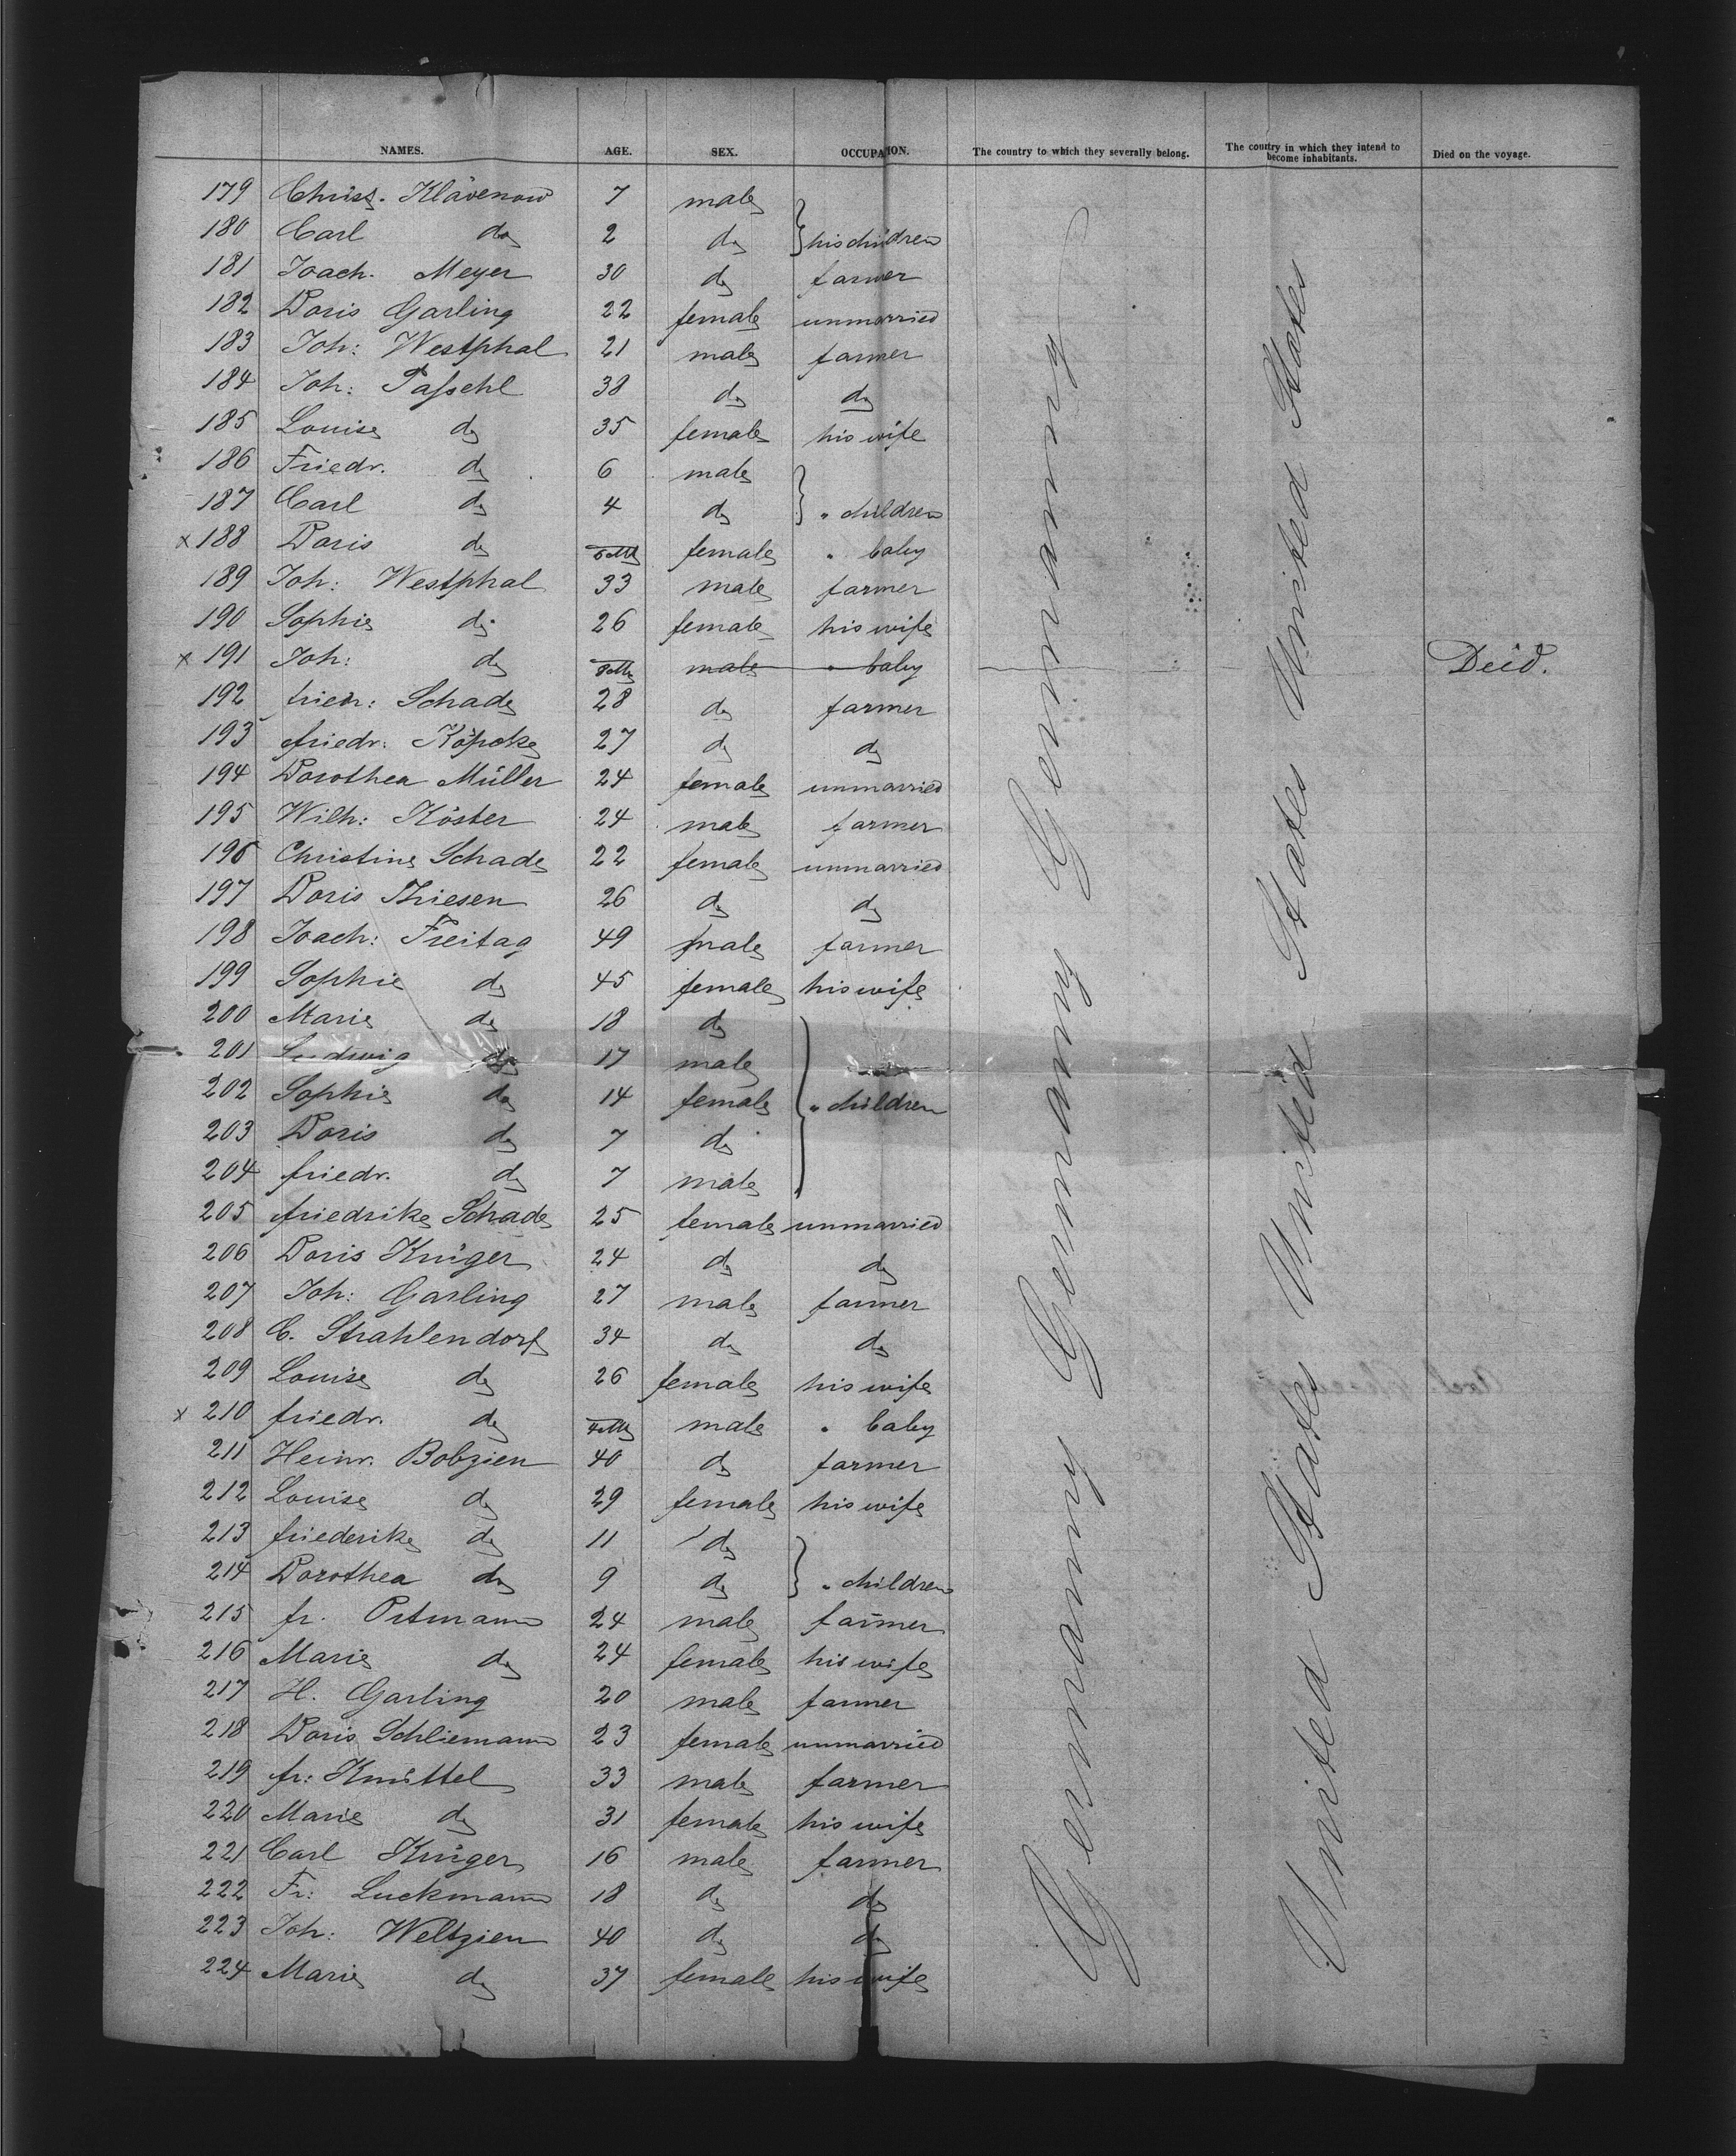 NAMES. AGE. SEX. OCCUPATION. The country to which they severally belong. The country in which they intend to become inhabitants. Died on the voyage.
179 Christ. Klävenow 7 male
180 Carl do 2 do } his children
181 Joach. Meyer 30 do farmer
182 Doris Garling 22 female unmarried
183 Joh: Westphal 21 male farmer
184 Joh: Passehl 38 do do
185 Louise do 35 female his wife
186 Friedr. do 6 male
187 Carl do 4 do } " children
x 188 Doris do female " baby
189 Joh: Westphal 33 male farmer
190 Sophie do 26 female his wife
x 191 Joh: do male " baby Deid.
192 friedr: Schade 28 do farmer
193 friedr: Köpcke 27 do do
194 Dorothea Müller 24 female unmarried
195 Wilh: Köster 24 male farmer
196 Christine Schade 22 female unmarried
197 Doris Thiesen 26 do do
198 Joach: Freitag 49 male farmer
199 Sophie do 45 female his wife
200 Marie do 18 do
201 Ludwig do 17 male
202 Sophie do 14 female } " children
203 Doris do 7 do
204 friedr. do 7 male
205 friedrike Schade 25 female unmarried
206 Doris Krüger 24 do do
207 Joh: Garling 27 male farmer
208 C. Strahlendorf 34 do do
209 Louise do 26 female his wife
x 210 friedr. do male " baby
211 Heinr. Bobzien 40 do farmer
212 Louise do 29 female his wife
213 friederike do 11 do
214 Dorothea do 9 do } " children
215 fr. Ortmann 24 male farmer
216 Marie do 24 female his wife
217 H. Garling 20 male farmer
218 Doris Schliemann 23 female unmarried
219 fr: Knüttel 33 male farmer
220 Marie do 31 female his wife
221 Carl Krüger 16 male farmer
222 Fr: Luckmann 18 do do
223 Joh: Weltzien 40 do do
224 Marie do 37 female his wife
Germany Germany Germany
United States United States United States